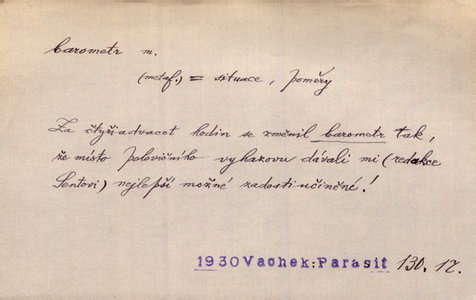 barometr m.
(metaf.) = situace, poměry
Za čtyřiadvacet hodin se změnil barometr tak,
že místo polovičního vyhazovu dávali mi (redakce
Sentovi) nejlepší možné zadostiučinění!
1930 Vachek: Parasit 130. 12.